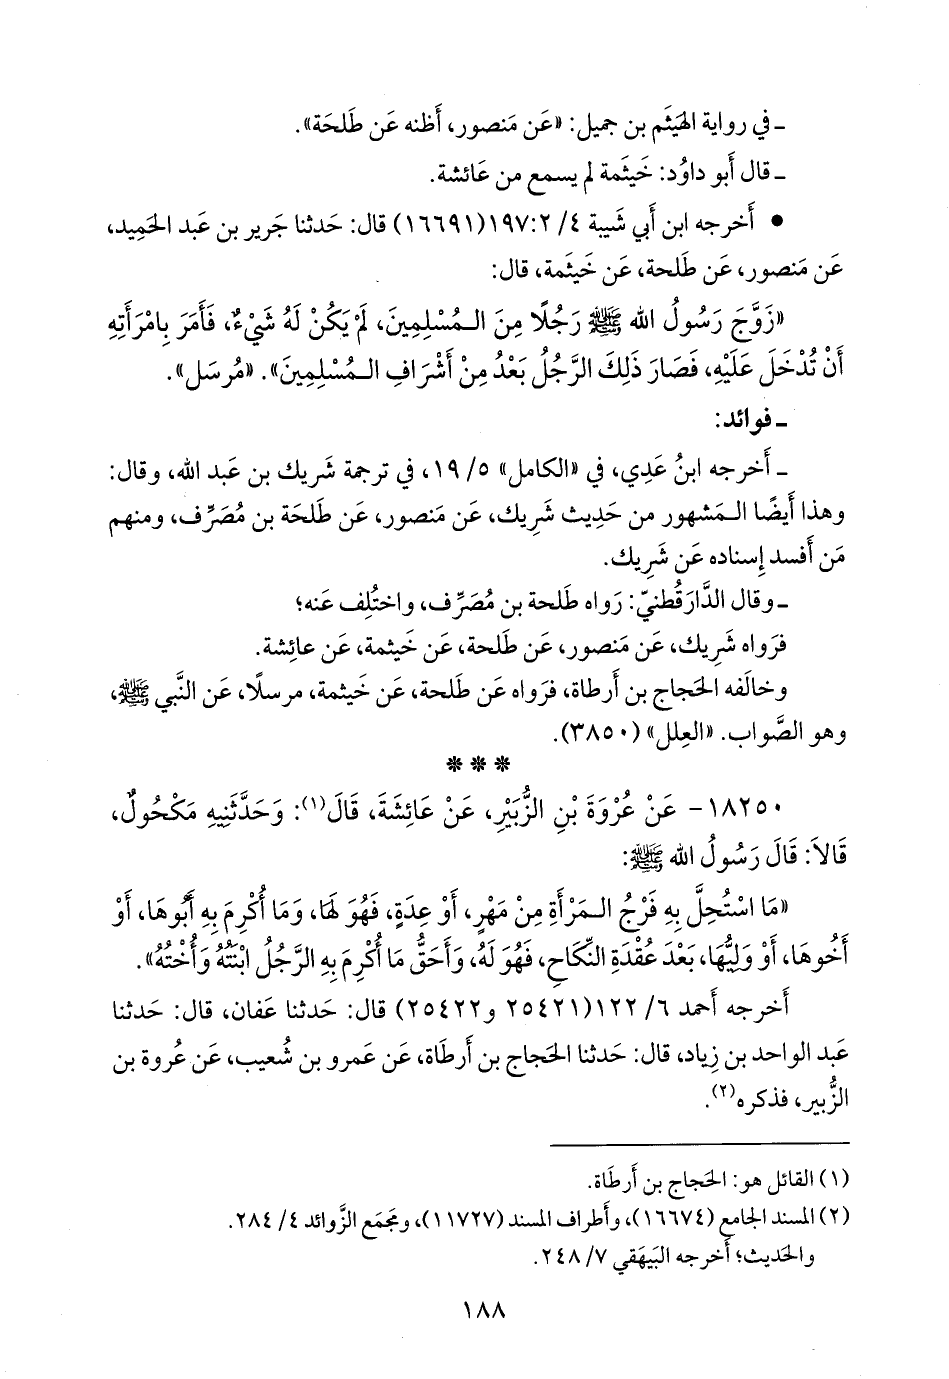 ـ في رواية الهَيثَم بن جميل: «عَن مَنصور، أَظنه عَن طَلحَة».
ـ قال أَبو داوُد: خَيثَمة لم يسمع من عَائشة.
• أَخرجه ابن أَبي شَيبة ٤/ ١٩٧:٢(١٦٦٩١) قال: حَدثنا جَرير بن عَبد الحَمِيد،
عَن مَنصور، عَن طَلحة، عَن خَيثَمة، قال:
«زَوَّجَ رَسُولُ الله ﷺ رَجُلًا مِنَ الـمُسْلِمِينَ، لَمْ يَكُنْ لَهُ شَيْءٌ، فَأَمَرَ بِامْرَأَتِهِ
أَنْ تُدْخَلَ عَلَيْهِ، فَصَارَ ذَلِكَ الرَّجُلُ بَعْدُ مِنْ أَشْرَافِ الـمُسْلِمِينَ». «مُرسَل».
ـ فوائد:
ـ أَخرجه ابنُ عَدِي، في «الكامل» ٥/ ١٩، في ترجمة شَريك بن عَبد الله، وقال:
وهذا أَيضًا الـمَشهور من حَدِيث شَرِيك، عَن مَنصور، عَن طَلحَة بن مُصَرِّف، ومنهم
مَن أَفسد إِسناده عَن شَرِيك.
ـ وقال الدَّارَقُطنيّ: رَواه طَلحة بن مُصَرِّف، واختُلِف عَنه؛
فرَواه شَرِيك، عَن مَنصور، عَن طَلحة، عَن خَيثمة، عَن عائِشة.
وخالَفه الحَجاج بن أَرطاة، فرَواه عَن طَلحة، عَن خَيثمة، مرسلًا، عَن النَّبي ﷺ،
وهو الصَّواب. «العِلل» (٣٨٥٠).
* * *
١٨٢٥٠- عَنْ عُرْوَةَ بْنِ الزُّبَيْرِ، عَنْ عَائِشَةَ، قَالَ(١): وَحَدَّثَنِيهِ مَكْحُولٌ،
قَالاَ: قَالَ رَسُولُ الله ﷺ:
«مَا اسْتُحِلَّ بِهِ فَرْجُ الـمَرْأَةِ مِنْ مَهْرٍ، أَوْ عِدَةٍ، فَهُوَ لَهَا، وَمَا أُكْرِمَ بِهِ أَبُوهَا، أَوْ
أَخُوهَا، أَوْ وَلِيُّهَا، بَعْدَ عُقْدَةِ النِّكَاحِ، فَهُوَ لَهُ، وَأَحَقُّ مَا أُكْرِمَ بِهِ الرَّجُلُ ابْنَتُهُ وَأُخْتُهُ».
أَخرجه أَحمد ٦/ ١٢٢(٢٥٤٢١ و٢٥٤٢٢) قال: حَدثنا عَفان، قال: حَدثنا
عَبد الواحد بن زِياد، قال: حَدثنا الحَجاج بن أَرطَاة، عَن عَمرو بن شُعيب، عَن عُروة بن
الزُّبير، فذكره(٢).
(١) القائل هو: الحَجاج بن أَرطَاة.
(٢) المسند الجامع (١٦٦٧٤)، وأَطراف المسند (١١٧٢٧)، ومَجمَع الزَّوائد ٤/ ٢٨٤.
والحَديث؛ أَخرجه البَيهَقي ٧/ ٢٤٨.
١٨٨